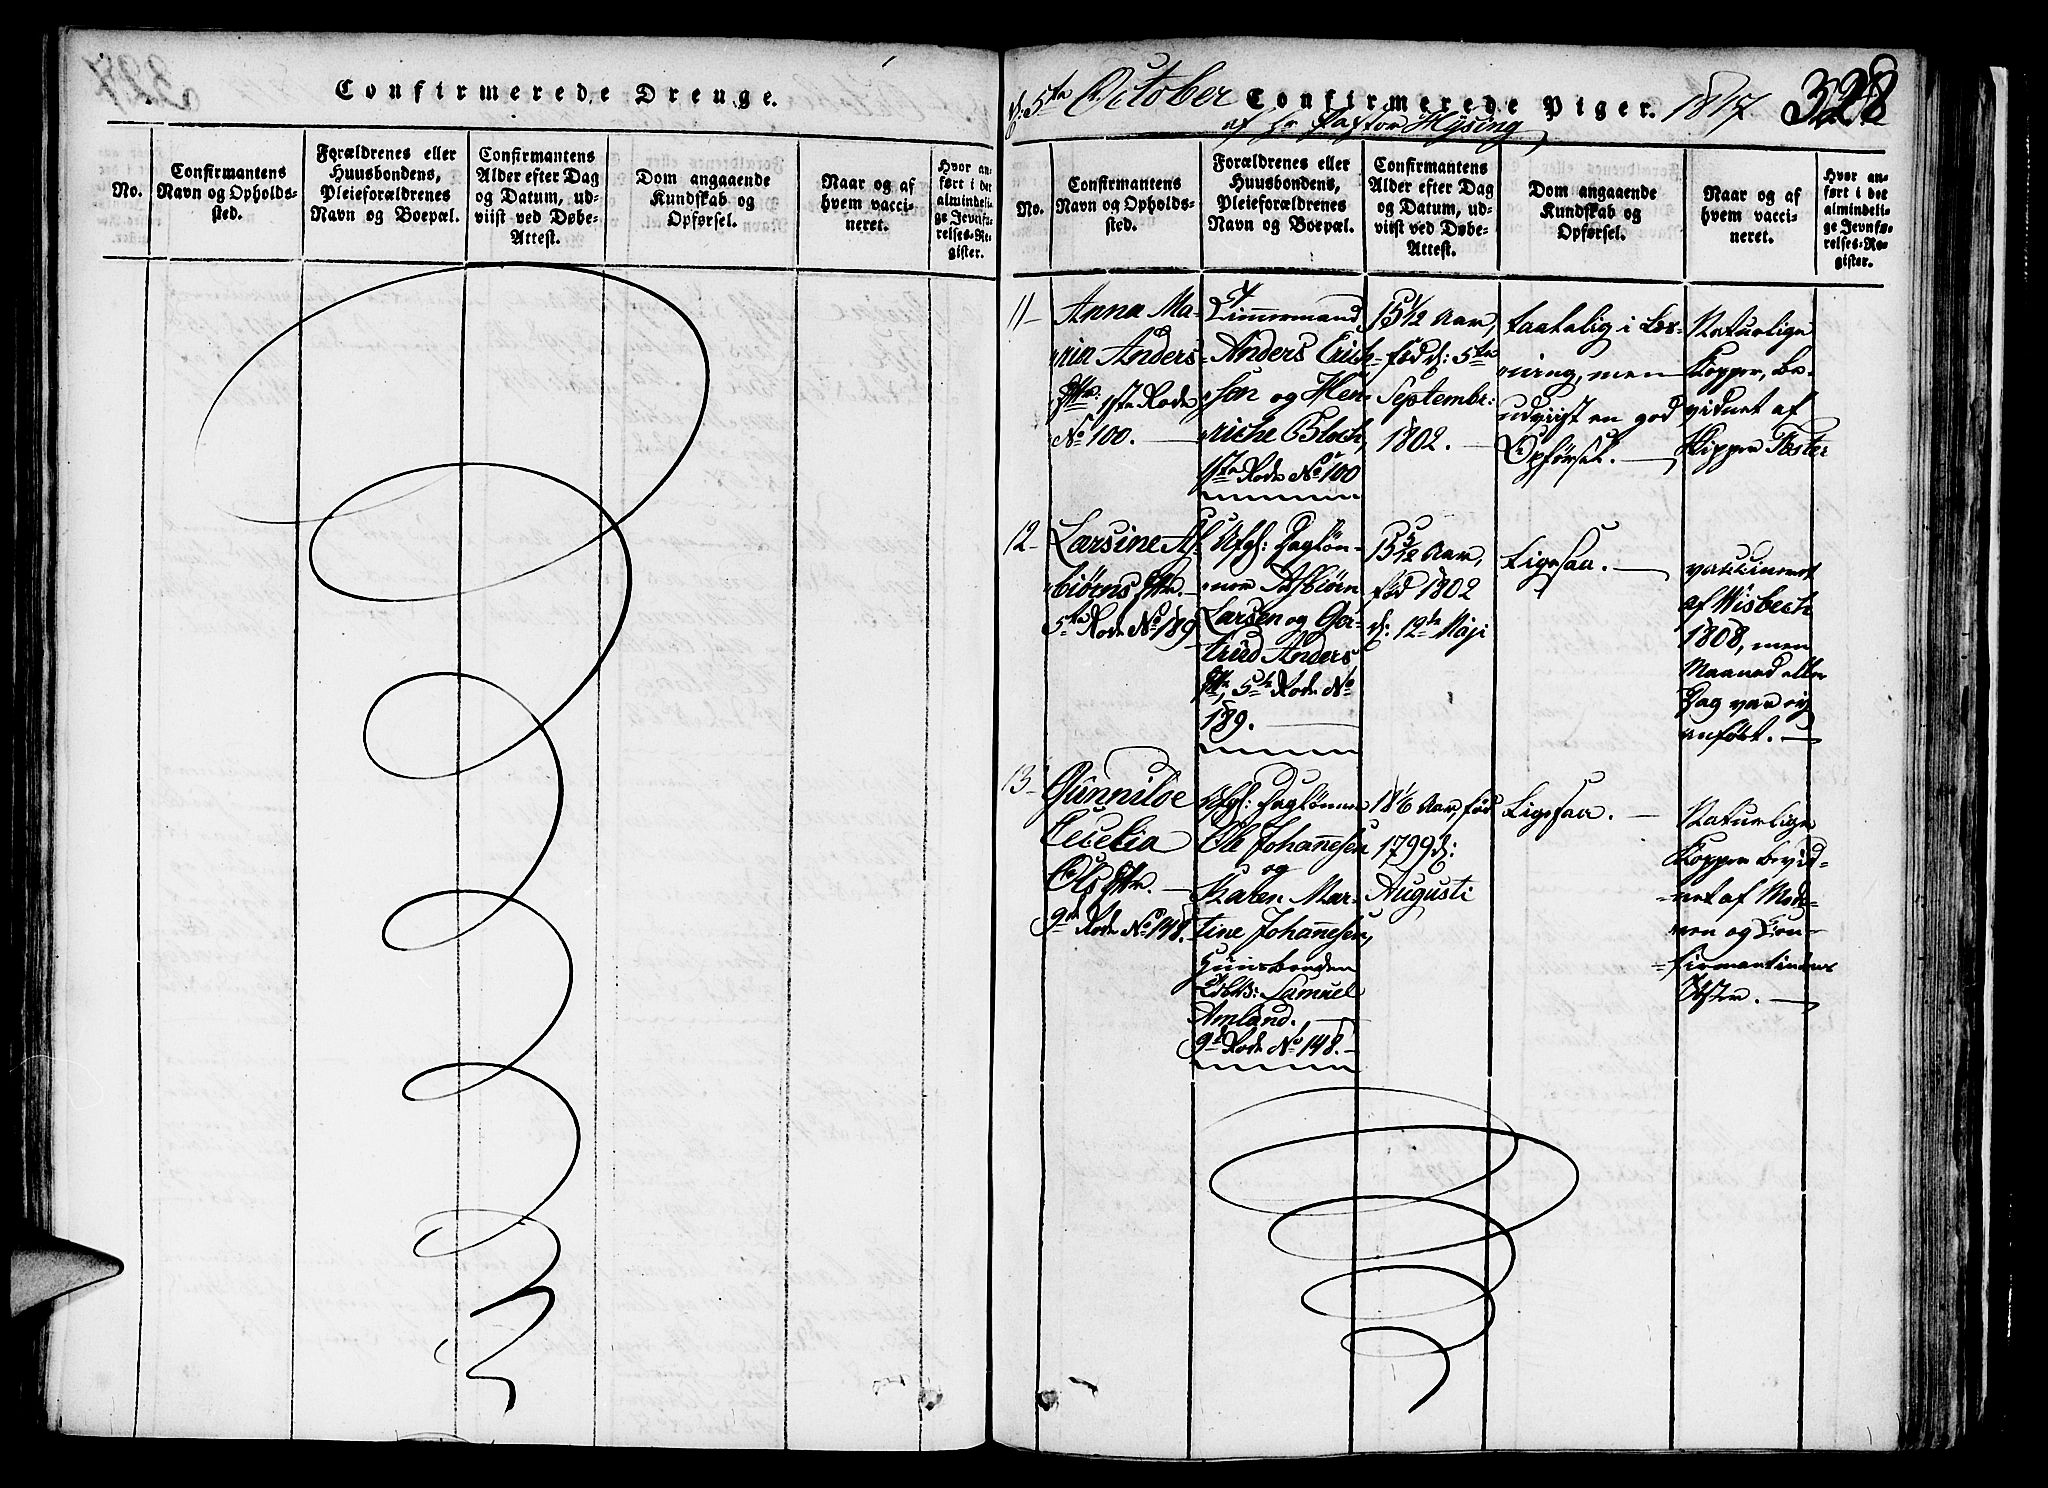 Confirmerede Drenge.
No.
Confirmantens
Navn og Opholds-
sted.
Forældrenes eller
Huusbondens,
Pleieforældrenes
Navn og Boepæl.
Confirmantens
Alder efter Dag
og Datum, ud-
viist ved Døbe-
Attest.
Dom angaaende
Kundskab og
Opførsel.
Naar og af
hvem vacci-
neret.
Hvor an-
ført i det
almindeli-
ge Jevnfø-
relses-Re-
gister.
d: 5te October Confirmerede Piger. 1817. 328
af Hr Pastor Hysing
No.
Confirmantens
Navn og Opholds-
sted.
Forældrenes eller
Huusbondens,
Pleieforældrenes
Navn og Boepæl.
Confirmantens
Alder efter Dag
og Datum, ud-
viist ved Døbe-
Attest.
Dom angaaende
Kundskab og
Opførsel.
Naar og af
hvem vacci-
neret.
Hvor an-
ført i det
almindeli-
ge Jevnfø-
relses-Re-
gister.
11-
Anna Ma-
ria Anders-
Dttr: 1ste Rode
No 100.
Timmermand
Anders Erich-
sen og Hen-
riche Bloch,
1ste Rode No 100
15 1/2 Aar,
fød d: 5te
Septembr:
1802.
taalelig i Læs-
ning, men
udviist en god
Opførsel.
Naturlige
Kopper, be-
vidnet af
Klipper Foster
12-
Larsine As-
biørns Dttr.
5te Rode No 189
Afg: Dagløn-
ner Asbiørn
Larsen og Ger-
trud Anders
Dttr, 5te Rode No
189.
15 5/12 Aar,
fød 1802
d: 12te Maji
Ligesaa.
vaccineret
af Wisbech
1808, men
Maaned eller
Dag var ej
anført.
13-
Gunnilde
Cecelia
Ols Dttr.
9de Rode No 148.
Afg: Daglønner
Ole Johannesen
og
Karen Mar-
tine Johannesen,
Huusbonden
Samuel
Amland.
9de Rode No 148.
18 1/6 Aar, fød
1799 d:
Augusti
Ligesaa.
Naturlige
Kopper bevid-
net af Mode-
ren og Con-
firmantindens